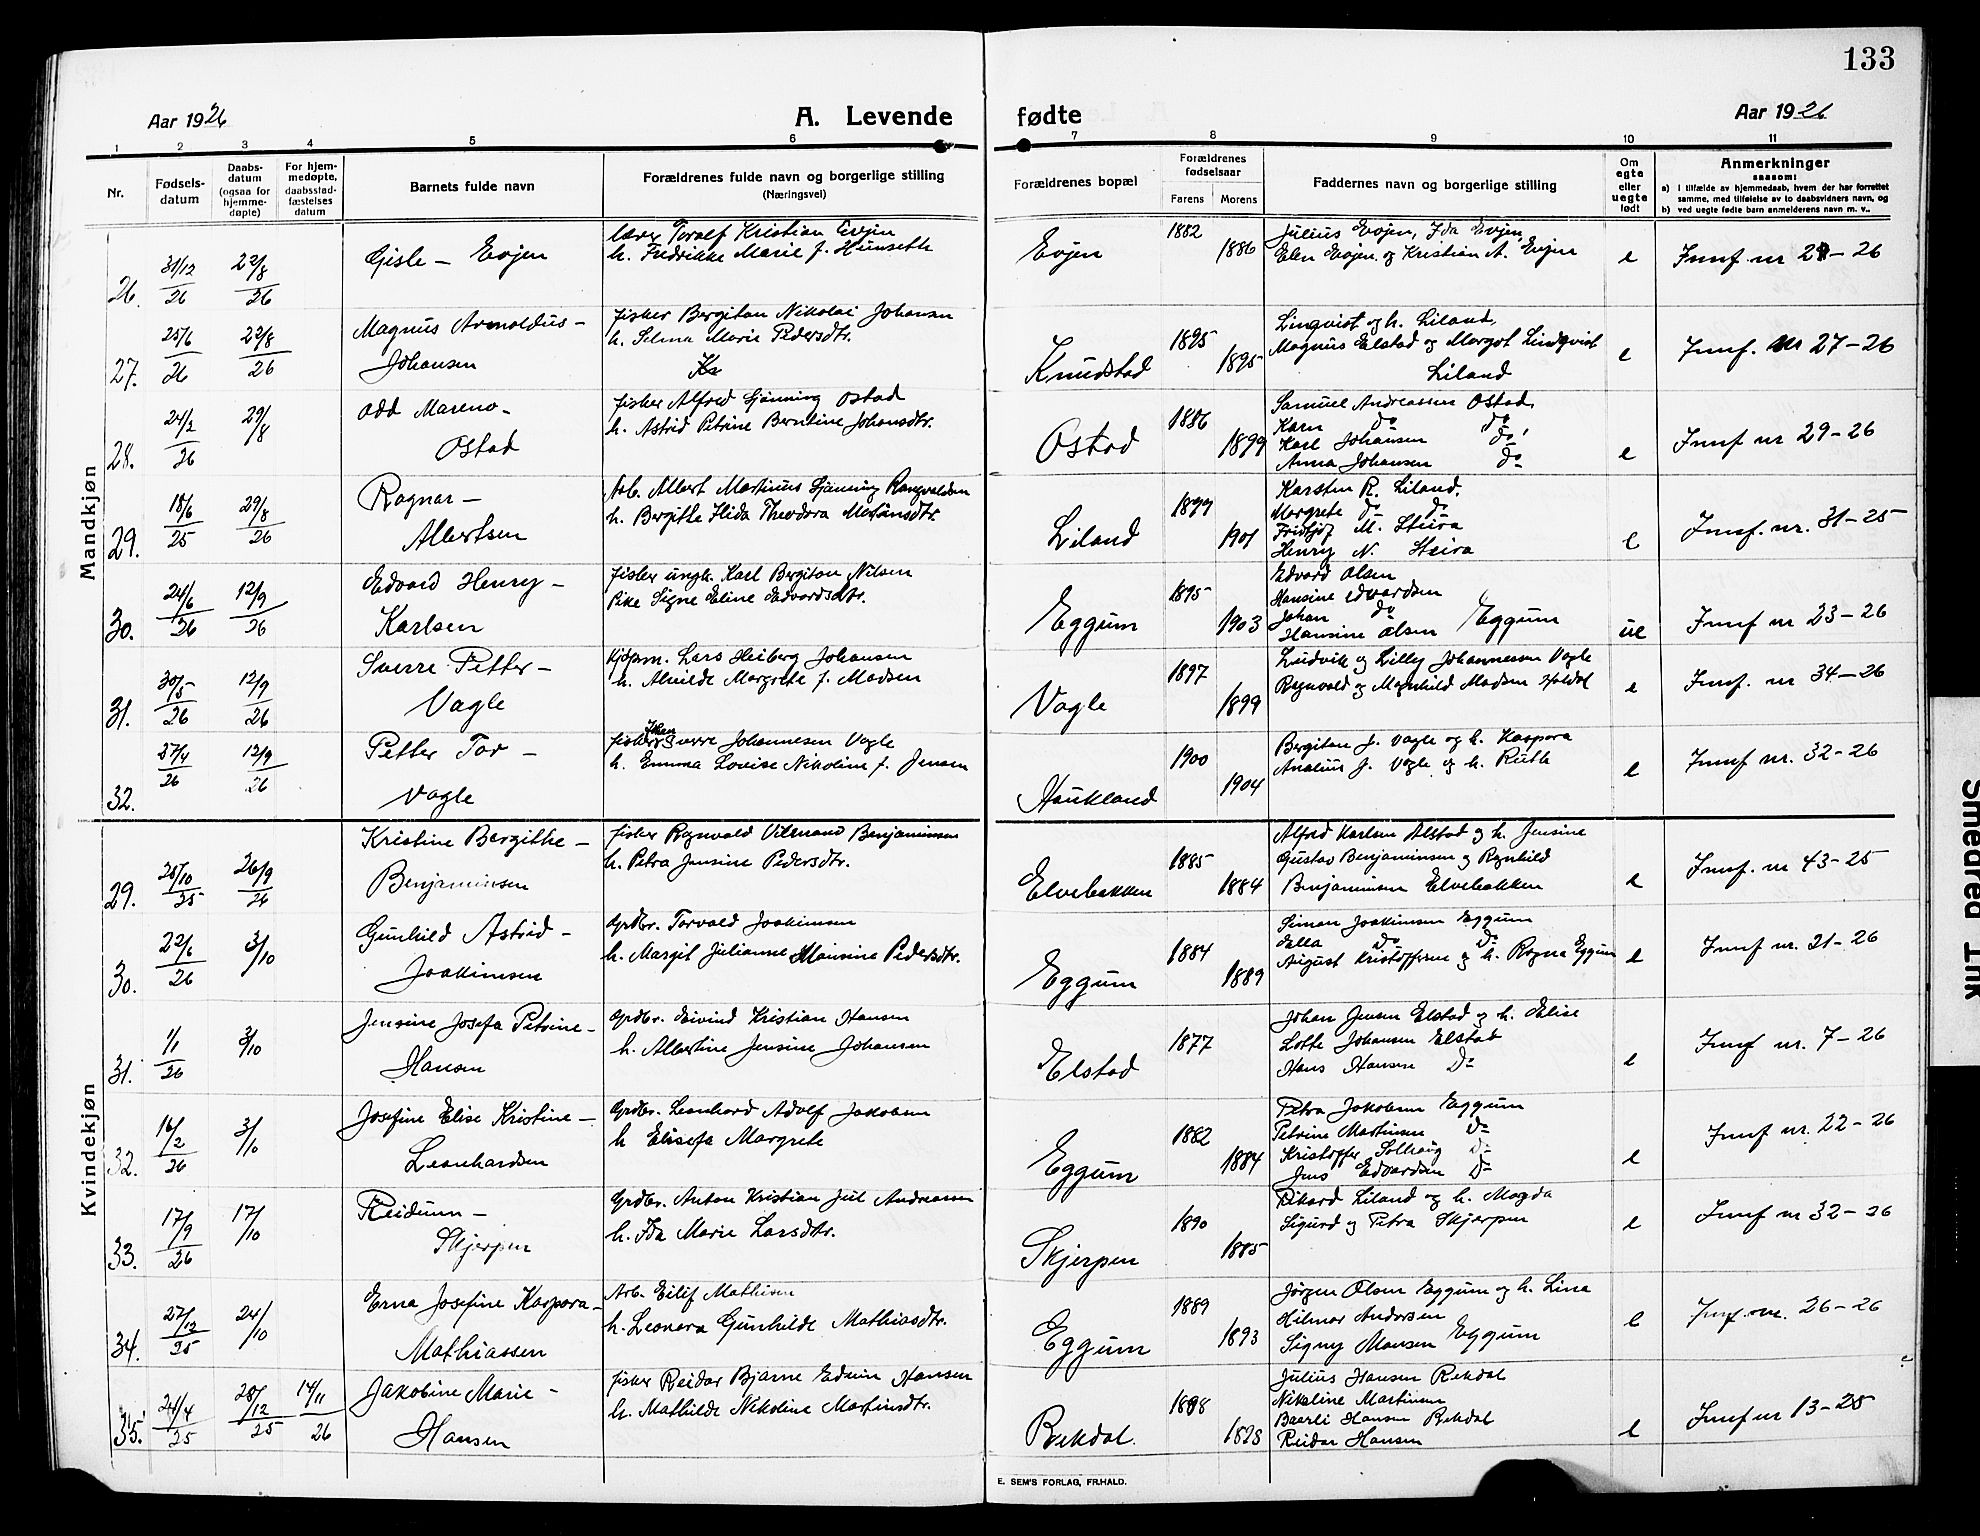 133
Aar 1926
A. Levende fødte
Aar 1926
1 2 3 4 5 6 7 8 9 10 11
Nr.
Fødsels-
datum
Daabs-
datum
(ogsaa for
hjemme-
døpte)
For hjem-
medøpte,
daabsstad-
fæstelses
datum
Barnets fulde navn
Forældrenes fulde navn og borgerlige stilling
(Næringsvei)
Forældrenes bopæl
Forældrenes
fødselsaar
Farens
Morens
Faddernes navn og borgerlige stilling
Om
egte
eller
uegte
født
Anmerkninger
saasom:
a) i tilfælde av hjemmedaab, hvem der har forrettet
samme, med tilføielse av to daabsvidners navn, og
b) ved uegte fødte barn anmelderens navn m. v..
Mandkjøn
26. 31/12 26 22/8 26
Gisle – Evjen
lærer Toralf Kristian Evjen
h. Fredrikke Marie f. Hunseth
Evjen 1882 1886
Julius Evjen, Ida Evjen
Elen Evjen og Kristian A. Evjen
e
Innf nr 24–26
27. 25/6 26 22/8 26
Magnus Arnoldus –
Johansen
fisker Bergiton Nikolai Johansen
h. Selma Marie Pedersdtr.
Knudstad 1895 1895
Linqvist og h. Liland,
Magnus Elstad og Margot Lindqvist
Liland
e
Innf. nr 27–26
28. 24/2 26 29/8
Odd Mareno –
Ostad
fisker Alfred Hjønning Ostad
h. Astrid Petrine Berntine Johansdtr.
Ostad 1886 1899
Samuel Andreassen Ostad,
Karn do do
Karl Johansen do,
Anna Johansen do
e
Innf nr 29–26
29. 18/6 25 29/8 26
Ragnar –
Albertsen
Arb. Albert Martinus Hjønning Rangvaldsen
h. Bergitte Hilda Theodora Martinsdtr.
Liland 1899 1901
Karsten R. Liland,
Margrete do do
Fridtjof M. Steira
Henry N. Steira
e
Innf. nr. 31–25
30. 24/6 26 12/9 26
Edvard Henry –
Karlsen
fisker ungk. Karl Bergiton Nilsen
Pike Signe Eline Edvardsdtr.
Eggum 1895 1903
Edvard Olsen
Hansine Edvardsen
Johan do
Hansine Olsen Eggum
ue
Innf nr 23–26
31. 30/5 26 12/9 26
Sverre Petter –
Vagle
Kjøpm. Lars Heiberg Johansen
h. Alvilde Margrete f. Madsen
Vagle 1897 1899
Ludvik og Lilly Johannessen Vagle
Ragnvald og Magnhild Madsen Holdal
e
Innf. nr 34–26
32. 27/4 26 12/9 26
Petter Tor –
Vagle
Johan
fisker Sverre Johannesen Vagle
h. Emma Lovise Nikoline f. Jensen
Haukland 1900 1904
Bergiton J. Vagle og h. Kaspara
Analius J. Vagle og h. Ruth
e
Innf nr. 32–26
Kvindekjøn
29. 25/10 25 26/9 26
Kristine Bergithe –
Benjaminsen
fisker Ragnvald Vilmand Benjaminsen
h. Petra Jensine Pedersdtr.
Elvebakken 1885 1884
Alfred Karlsen Alstad og h. Jensine
Gustav Benjaminsen og Ragnhild
Benjaminsen Elvebakken
e
Innf. nr 43–25
30. 22/6 26 3/10
Gunhild Astrid –
Joakimsen
Grdbr. Torvald Joakimsen
h. Margit Julianne Hansine Pedersdtr.
Eggum 1884 1889
Simon Joakimsen Eggum
Della do do
August Kristoffersen og h. Ragna Eggum
e
Innf nr. 21–26
31. 1/1 26 3/10
Jensine Josefa Petrine –
Hansen
Grdbr. Eivind Kristian Hansen
h. Albertine Jensine Johansen
Elstad 1877
Johan Jensen Elstad og h. Elise
Lotte Johansen Elstad
Hans Hansen do
e
Innf nr. 7–26
32. 16/2 26 3/10
Josefine Elise Kristine –
Leonhardsen
Grdbr. Leonhard Adolf Jakobsen
h Elisefa Margrete
Eggum 1882 1884
Petra Jakobsen Eggum
Petrine Martinsen do
Kristoffer Solhaug do
Jens Edvardsen do
e
Innf nr. 22–26
33. 17/9 26 17/10
Reidunn –
Skjerpen
Grdbr. Anton Kristian Juul Andreassen
h. Ida Marie Larsdtr.
Skjerpen 1890 1885
Rikard Liland og h. Magda
Sigurd og Petra Skjerpen
e
Innf nr 32–26
34. 27/12 25 24/10
Erna Josefine Kaspara –
Mathiassen
Arb. Eilif Mathisen
h. Leonora Gunhilde Mathiasdtr.
Eggum 1889 1893
Jørgen Olsen Eggum og h. Lina
Hilmar Andersen
Signy Monsen Eggum
e
Innf. nr. 26–26
35. 24/4 25 28/12 25 14/11 26
Jakobine Marie –
Hansen
fisker Reidar Bjarne Edvin Hansen
h. Mathilde Nikoline Martinsdtr.
Rekdal 1898 1898
Julius Hansen Rekdal
Nikoline Martinsen
Baarli Hansen Rekdal
Reidar Hansen
e
Innf nr 13–25
E. SEM'S FORLAG, FR.HALD.
Smeared Ink